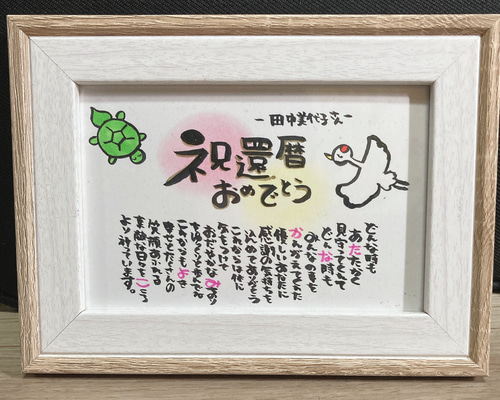 -田中美代子さん-
祝還暦
おめでとう
どんな時も
あたたかく
見守ってくれて
どんな時も
みんなの事を
かんがえてくれた
優しいあなたに
感謝の気持ちを
込めてありがとう
これからは体に
気をつけて
おだやかな
ゆっくり歩んでね
これからも
たくさんの
笑顔あふれる
素敵な日々をこころ
より祈っています。